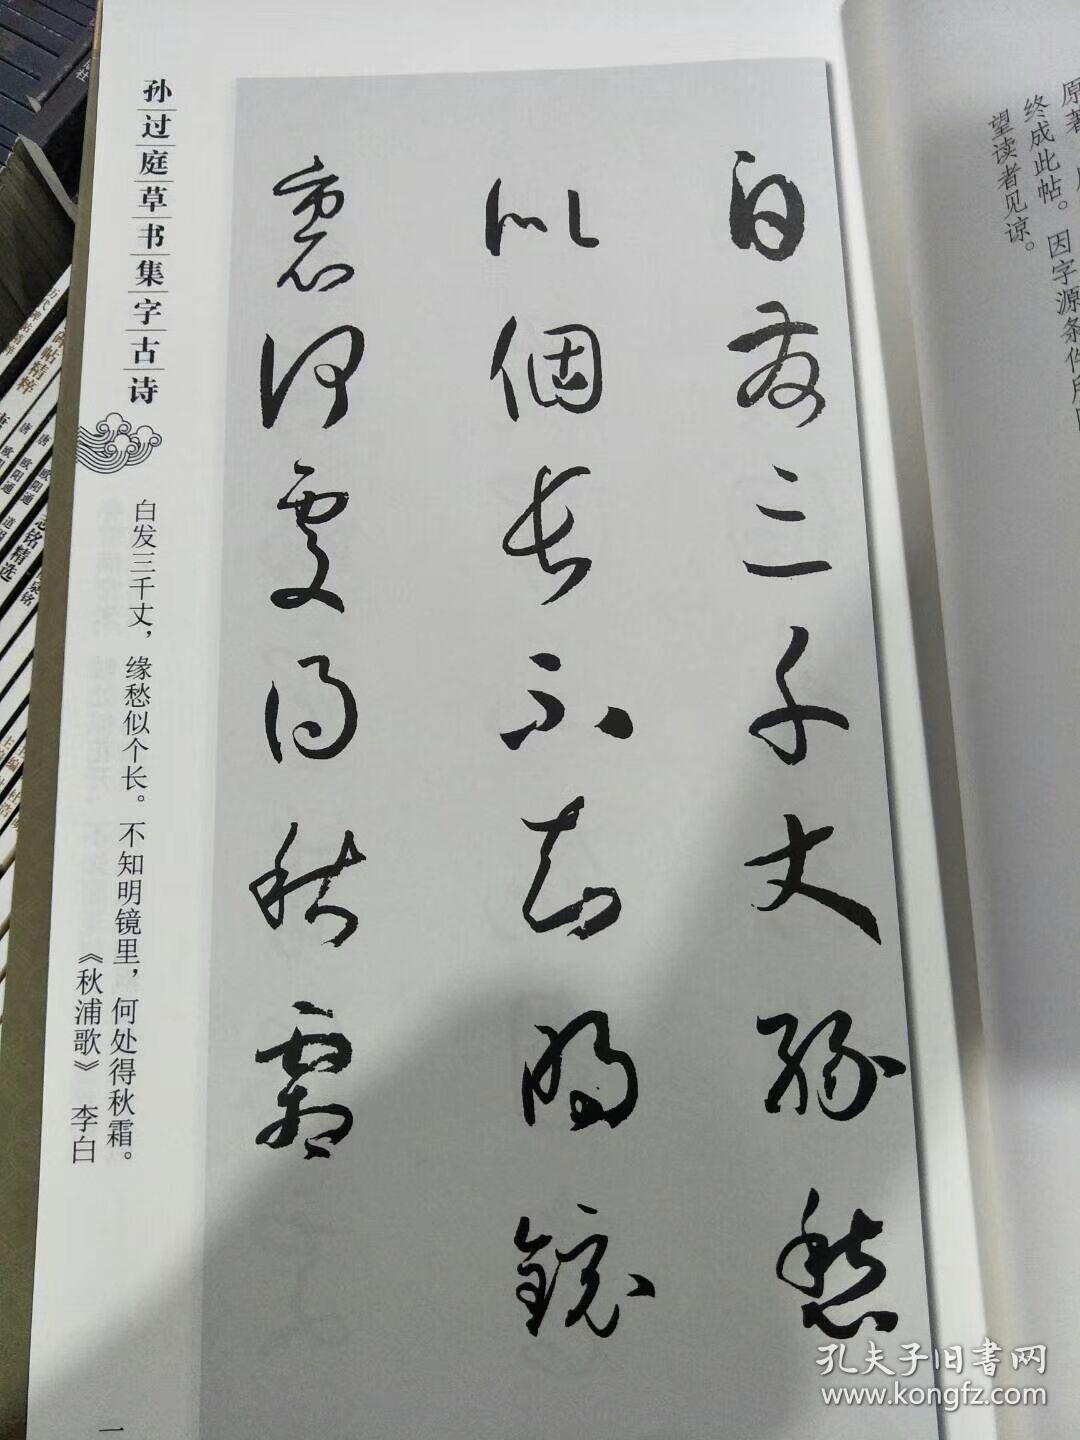 原著
终成此帖。因字源条件所
望读者见谅。
白发三千丈缘愁
似個长不知明镜
裏何处得秋霜
孙过庭草书集字古诗
白发三千丈，缘愁似个长。不知明镜里，何处得秋霜。
《秋浦歌》 李白
一
孔夫子旧書网
www.kongfz.com